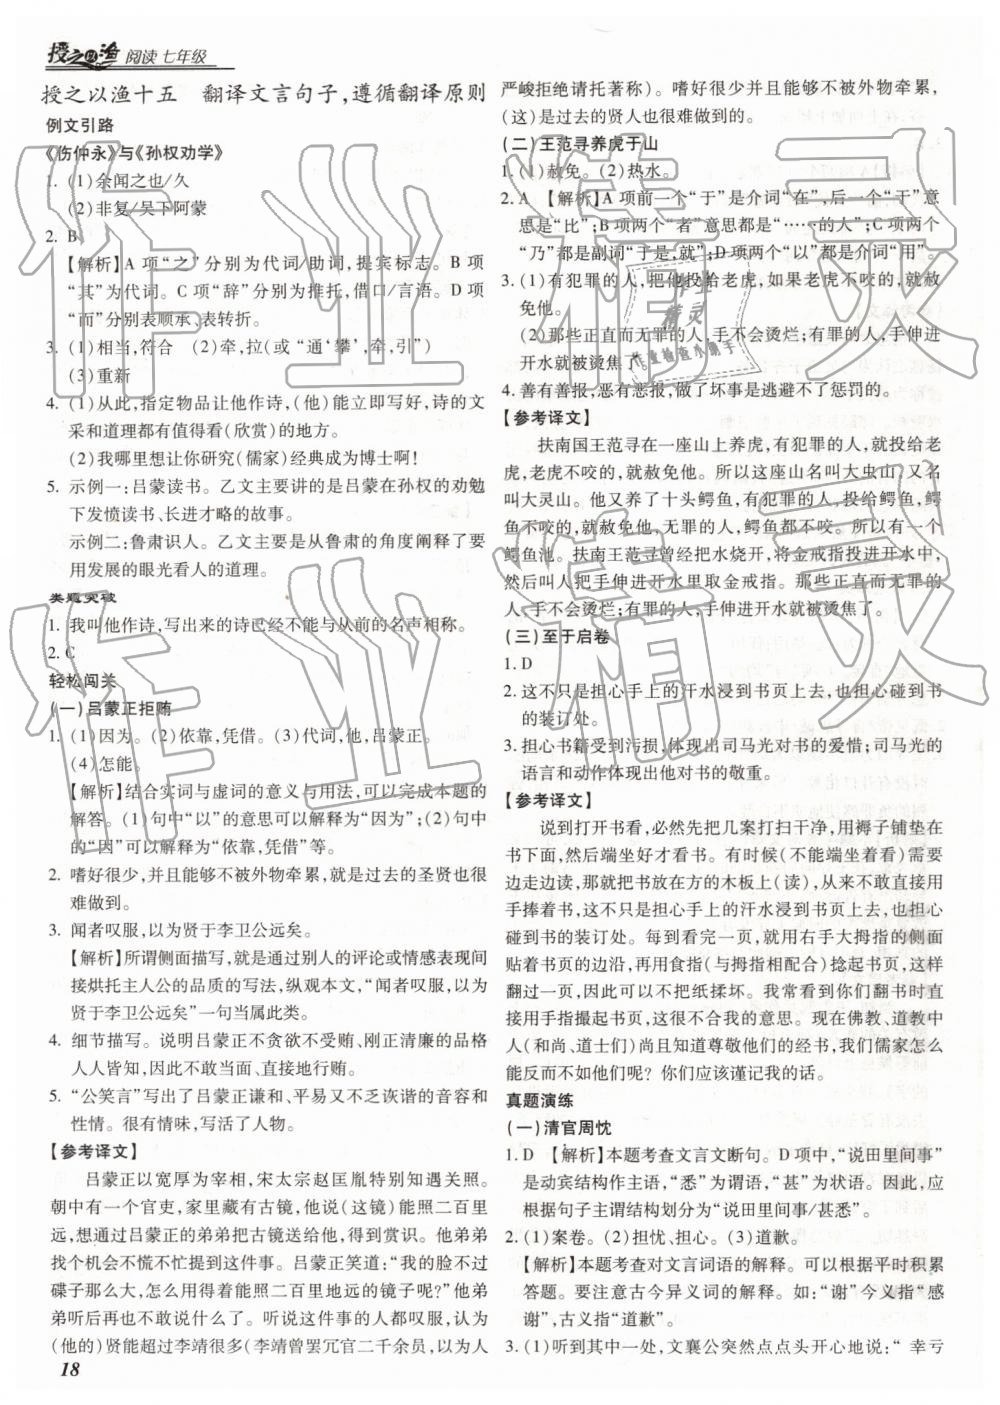 授之以渔 阅读 七年级
授之以渔十五　翻译文言句子,遵循翻译原则
例文引路
《伤仲永》与《孙权劝学》
1. (1)余闻之也/久
(2)非复/吴下阿蒙
2. B
【解析】A 项“之”分别为代词/助词,提宾标志。B 项
“其”为代词。C 项“辞”分别为推托,借口/言语。D 项
“而”分别表顺承、表转折。
3. (1)相当,符合　(2)牵,拉(或“通‘攀’,牵,引”)
(3)重新
4. (1)从此,指定物品让他作诗,(他)能立即写好,诗的文
采和道理都有值得看(欣赏)的地方。
(2)我哪里想让你研究(儒家)经典成为博士啊!
5. 示例一:吕蒙读书。乙文主要讲的是吕蒙在孙权的劝勉
下发愤读书、长进才略的故事。
示例二:鲁肃识人。乙文主要是从鲁肃的角度阐释了要
用发展的眼光看人的道理。
类题突破
1. 我叫他作诗,写出来的诗已经不能与从前的名声相称。
2. C
轻松闯关
(一)吕蒙正拒贿
1. (1)因为。(2)依靠,凭借。(3)代词,他,吕蒙正。
(4)怎能。
【解析】结合实词与虚词的意义与用法,可以完成本题的
解答。(1)句中“以”的意思可以解释为“因为”;(2)句中
的“因”可以解释为“依靠,凭借”等。
2. 嗜好很少,并且能够不被外物牵累,就是过去的圣贤也很
难做到。
3. 闻者叹服,以为贤于李卫公远矣。
【解析】所谓侧面描写,就是通过别人的评论或情感表现间
接烘托主人公的品质的写法,纵观本文,“闻者叹服,以为
贤于李卫公远矣”一句当属此类。
4. 细节描写。说明吕蒙正不贪欲不受贿、刚正清廉的品格
人人皆知,因此不敢做当面、直接地行贿。
5. “公笑言”写出了吕蒙正谦和、平易又不乏诙谐的音容和
性情。很有情味,写活了人物。
【参考译文】
吕蒙正以宽厚为宰相,宋太宗赵匡胤特别知遇关照。
朝中有一个官吏,家里藏有古镜,他说(这镜)能照二百里
远,想通过吕蒙正的弟弟把古镜送给他,得到赏识。他弟弟
找个机会不慌不忙提到这件事。吕蒙正笑道:“我的脸不过
碟子那么大,怎么用得着能照二百里地远的镜子呢?”他弟
弟听后再也不敢说什么了。听说这件事的人都叹服,以为
(他的)贤能超过李靖很多(李靖曾罢冗官二千余员,以为人
18
严峻拒绝请托著称)。嗜好很少,并且能够不被外物牵累,
(这)是过去的贤人也很难做到的。
(二)王范寻养虎于山
1. (1)赦免。(2)热水。
2. A　【解析】A 项前一个“于”是介词“在”,后一个“于”意
思是“比”;B 项两个“者”意思都是“……的人”;C 项两个
“乃”都是副词“于是,就”;D 项两个“以”都是介词“用”。
3. (1)有犯罪的人,把他投给老虎,如果老虎不咬的,就赦
免他。
(2)那些正直而无罪的人,手不会烫烂;有罪的人,手伸进
开水就被烫焦了。
4. 善有善报,恶有恶报,做了坏事是逃避不了惩罚的。
【参考译文】
扶南国王范寻在一座山上养虎,有犯罪的人,就投给老
虎,老虎不咬的,就赦免他。所以这座山名叫大虫山,又名
叫大灵山。他又养了十头鳄鱼,有犯罪的人,投给鳄鱼,鳄
鱼不咬的,就赦免他,无罪的人,鳄鱼都不咬。所以有一个
鳄鱼池。扶南王范寻曾经把水烧开,将金戒指投进开水中,
然后叫人把手伸进开水里取金戒指。那些正直而无罪的
人,手不会烫烂;有罪的人,手伸进开水就被烫焦了。
(三)至于启卷
1. D
2. 这不只是担心手上的汗水浸到书页上去,也担心碰到书
的装订处。
3. 担心书籍受到污损,体现出司马光对书的爱惜;司马光的
语言和动作体现出他对书的敬重。
【参考译文】
说到打开书看,必然先把几案打扫干净,用褥子铺垫在
书下面,然后端坐好才看书。有时候(不能端坐着看)需要
边走边读,那就把书放在方的木板上(读),从来不敢直接用
手捧着书,这不只是担心手上的汗水浸到书页上去,也担心
碰到书的装订处。每到看完一页,就用右手大拇指的侧面
贴着书页的边沿,再用食指(与拇指相配合)捻起书页,这样
翻过一页,因此可以不把纸揉坏。我常看到你们翻书时直
接用手指撮起书页,这很不合我的意思。现在佛教、道教中
人(和尚、道士们)尚且知道尊敬他们的经书,我们儒家怎么
能反而不如他们呢? 你们应该谨记我的话。
真题演练
(一)清官周忱
1. D　【解析】本题考查文言文断句。D 项中,“说田里间事”
是动宾结构作主语,“悉”为谓语,“甚”为状语。因此,应
根据句子主谓结构划分为“说田里间事/甚悉”。
2. (1)案卷。(2)担忧、担心。(3)道歉。
【解析】本题考查对文言词语的解释。可以根据平时积累
答题。要注意古今异义词的解释。如:“谢”今义指“感
谢”,古义指“道歉”。
3. (1)听到其中一处,文襄公突然点点头开心地说:“幸亏